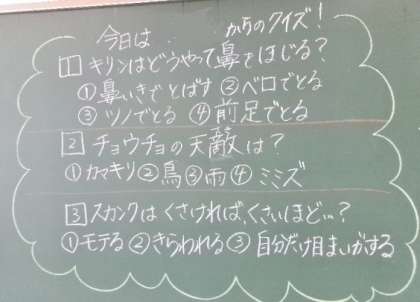 今日は　　　からのクイズ!
1 キリンはどうやって鼻をほじる?
①鼻いきでとばす ②ベロでとる
③ツノでとる ④前足でとる
2 チョウチョの天敵は?
①カマキリ②鳥③雨④ミミズ
3 スカンクはくさければ、くさいほど…?
①モテる②きらわれる③自分だけ目まいがする